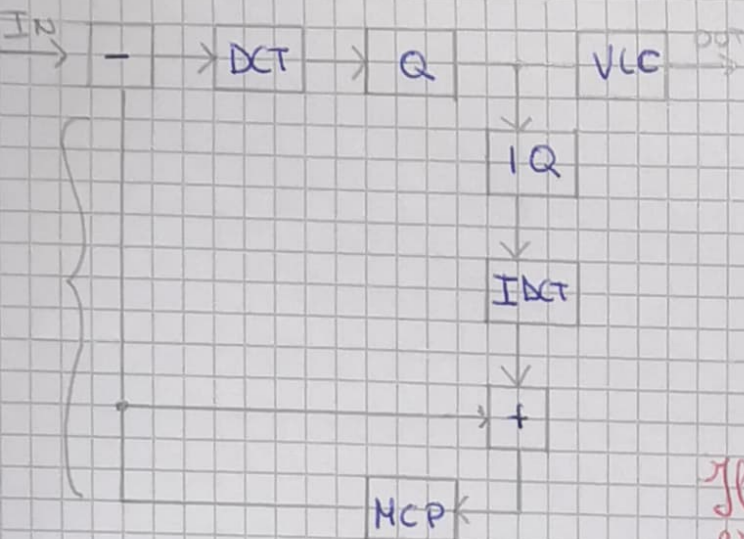 IN
- DCT Q VLC OUT
IQ
IDCT
+
MCP